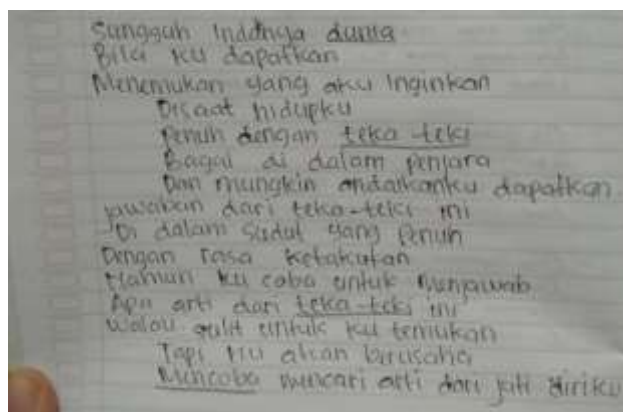 Sungguh Indahnya dunia
Bila ku dapatkan
Menemukan yang aku Inginkan
Disaat hidupku
Penuh dengan teka-teki
Bagai di dalam penjara
Dan mungkin andaikanku dapatkan
jawaban dari teka-teki ini
Di dalam sudut yang penuh
Dengan rasa ketakutan
Namun ku coba untuk menjawab
Apa arti dari teka-teki ini
Walau sulit untuk ku temukan
Tapi ku akan berusaha
Mencoba mencari arti dari jati diriku